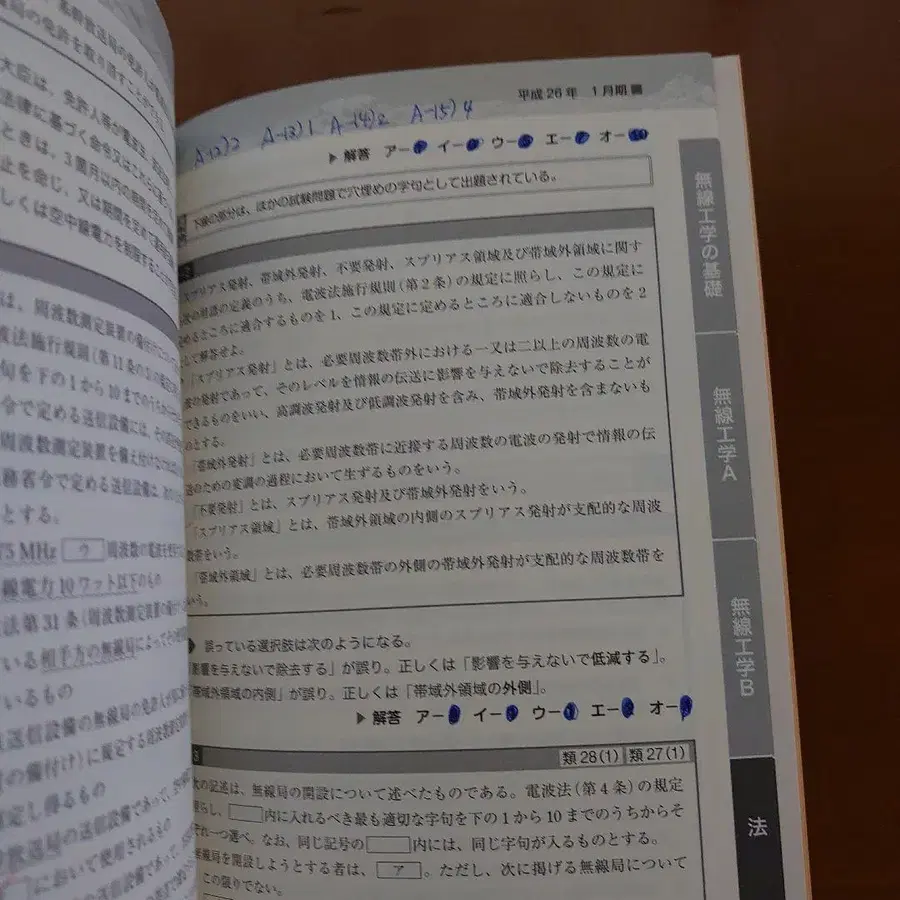 大臣は、免許人等が電波法、
法律に基づく命令又はこれらに
ときは、3箇月以内の期間を定めて
止を命じ、又は期間を定めて
しくは空中線電力を制限する
は、周波数測定装置の
波法施行規則(第11条の
句を下の1から10までのうちから
令で定める送信設備には、
周波数測定装置を備え付け
務省令で定める送信設備は、
とする。
75 MHz ウ 周波数の電波を
線電力10ワット以下のもの
法第31条(周波数測定装置の備付け
いる相手方の無線局によって
いるもの
送信設備の無線局の免許人が
の備付け)に規定する周波数
定し得るもの
放送局の送信設備であって、
において使用されるもの
平成26年 1月期
A-12)2 A-13)1 A-14)2 A-15)4
▶解答 ア- イ- ウ- エ- オ-
下線の部分は、ほかの試験問題で穴埋めの字句として出題されている。
スプリアス発射、帯域外発射、不要発射、スプリアス領域及び帯域外領域に関す
の用語の定義のうち、電波法施行規則(第2条)の規定に照らし、この規定に
定めるところに適合するものを1、この規定に定めるところに適合しないものを2
して解答せよ。
「スプリアス発射」とは、必要周波数帯外における一又は二以上の周波数の電
波の発射であって、そのレベルを情報の伝送に影響を与えないで除去することが
できるものをいい、高調波発射及び低調波発射を含み、帯域外発射を含まないも
のとする。
「帯域外発射」とは、必要周波数帯に近接する周波数の電波の発射で情報の伝
送のための変調の過程において生ずるものをいう。
「不要発射」とは、スプリアス発射及び帯域外発射をいう。
「スプリアス領域」とは、帯域外領域の内側のスプリアス発射が支配的な周波
数帯をいう。
「帯域外領域」とは、必要周波数帯の外側の帯域外発射が支配的な周波数帯を
いう。
誤っている選択肢は次のようになる。
影響を与えないで除去する」が誤り。正しくは「影響を与えないで低減する」。
帯域外領域の内側」が誤り。正しくは「帯域外領域の外側」。
▶解答 ア- イ- ウ- エ- オ-
類28(1) 類27(1)
次の記述は、無線局の開設について述べたものである。電波法(第4条)の規定
照らし、 内に入れるべき最も適切な字句を下の1から10までのうちからそ
ぞれ一つ選べ。なお、同じ記号の 内には、同じ字句が入るものとする。
無線局を開設しようとする者は、 ア 。ただし、次に掲げる無線局について
この限りでない。
無線工学の基礎
無線工学A
無線工学B
法